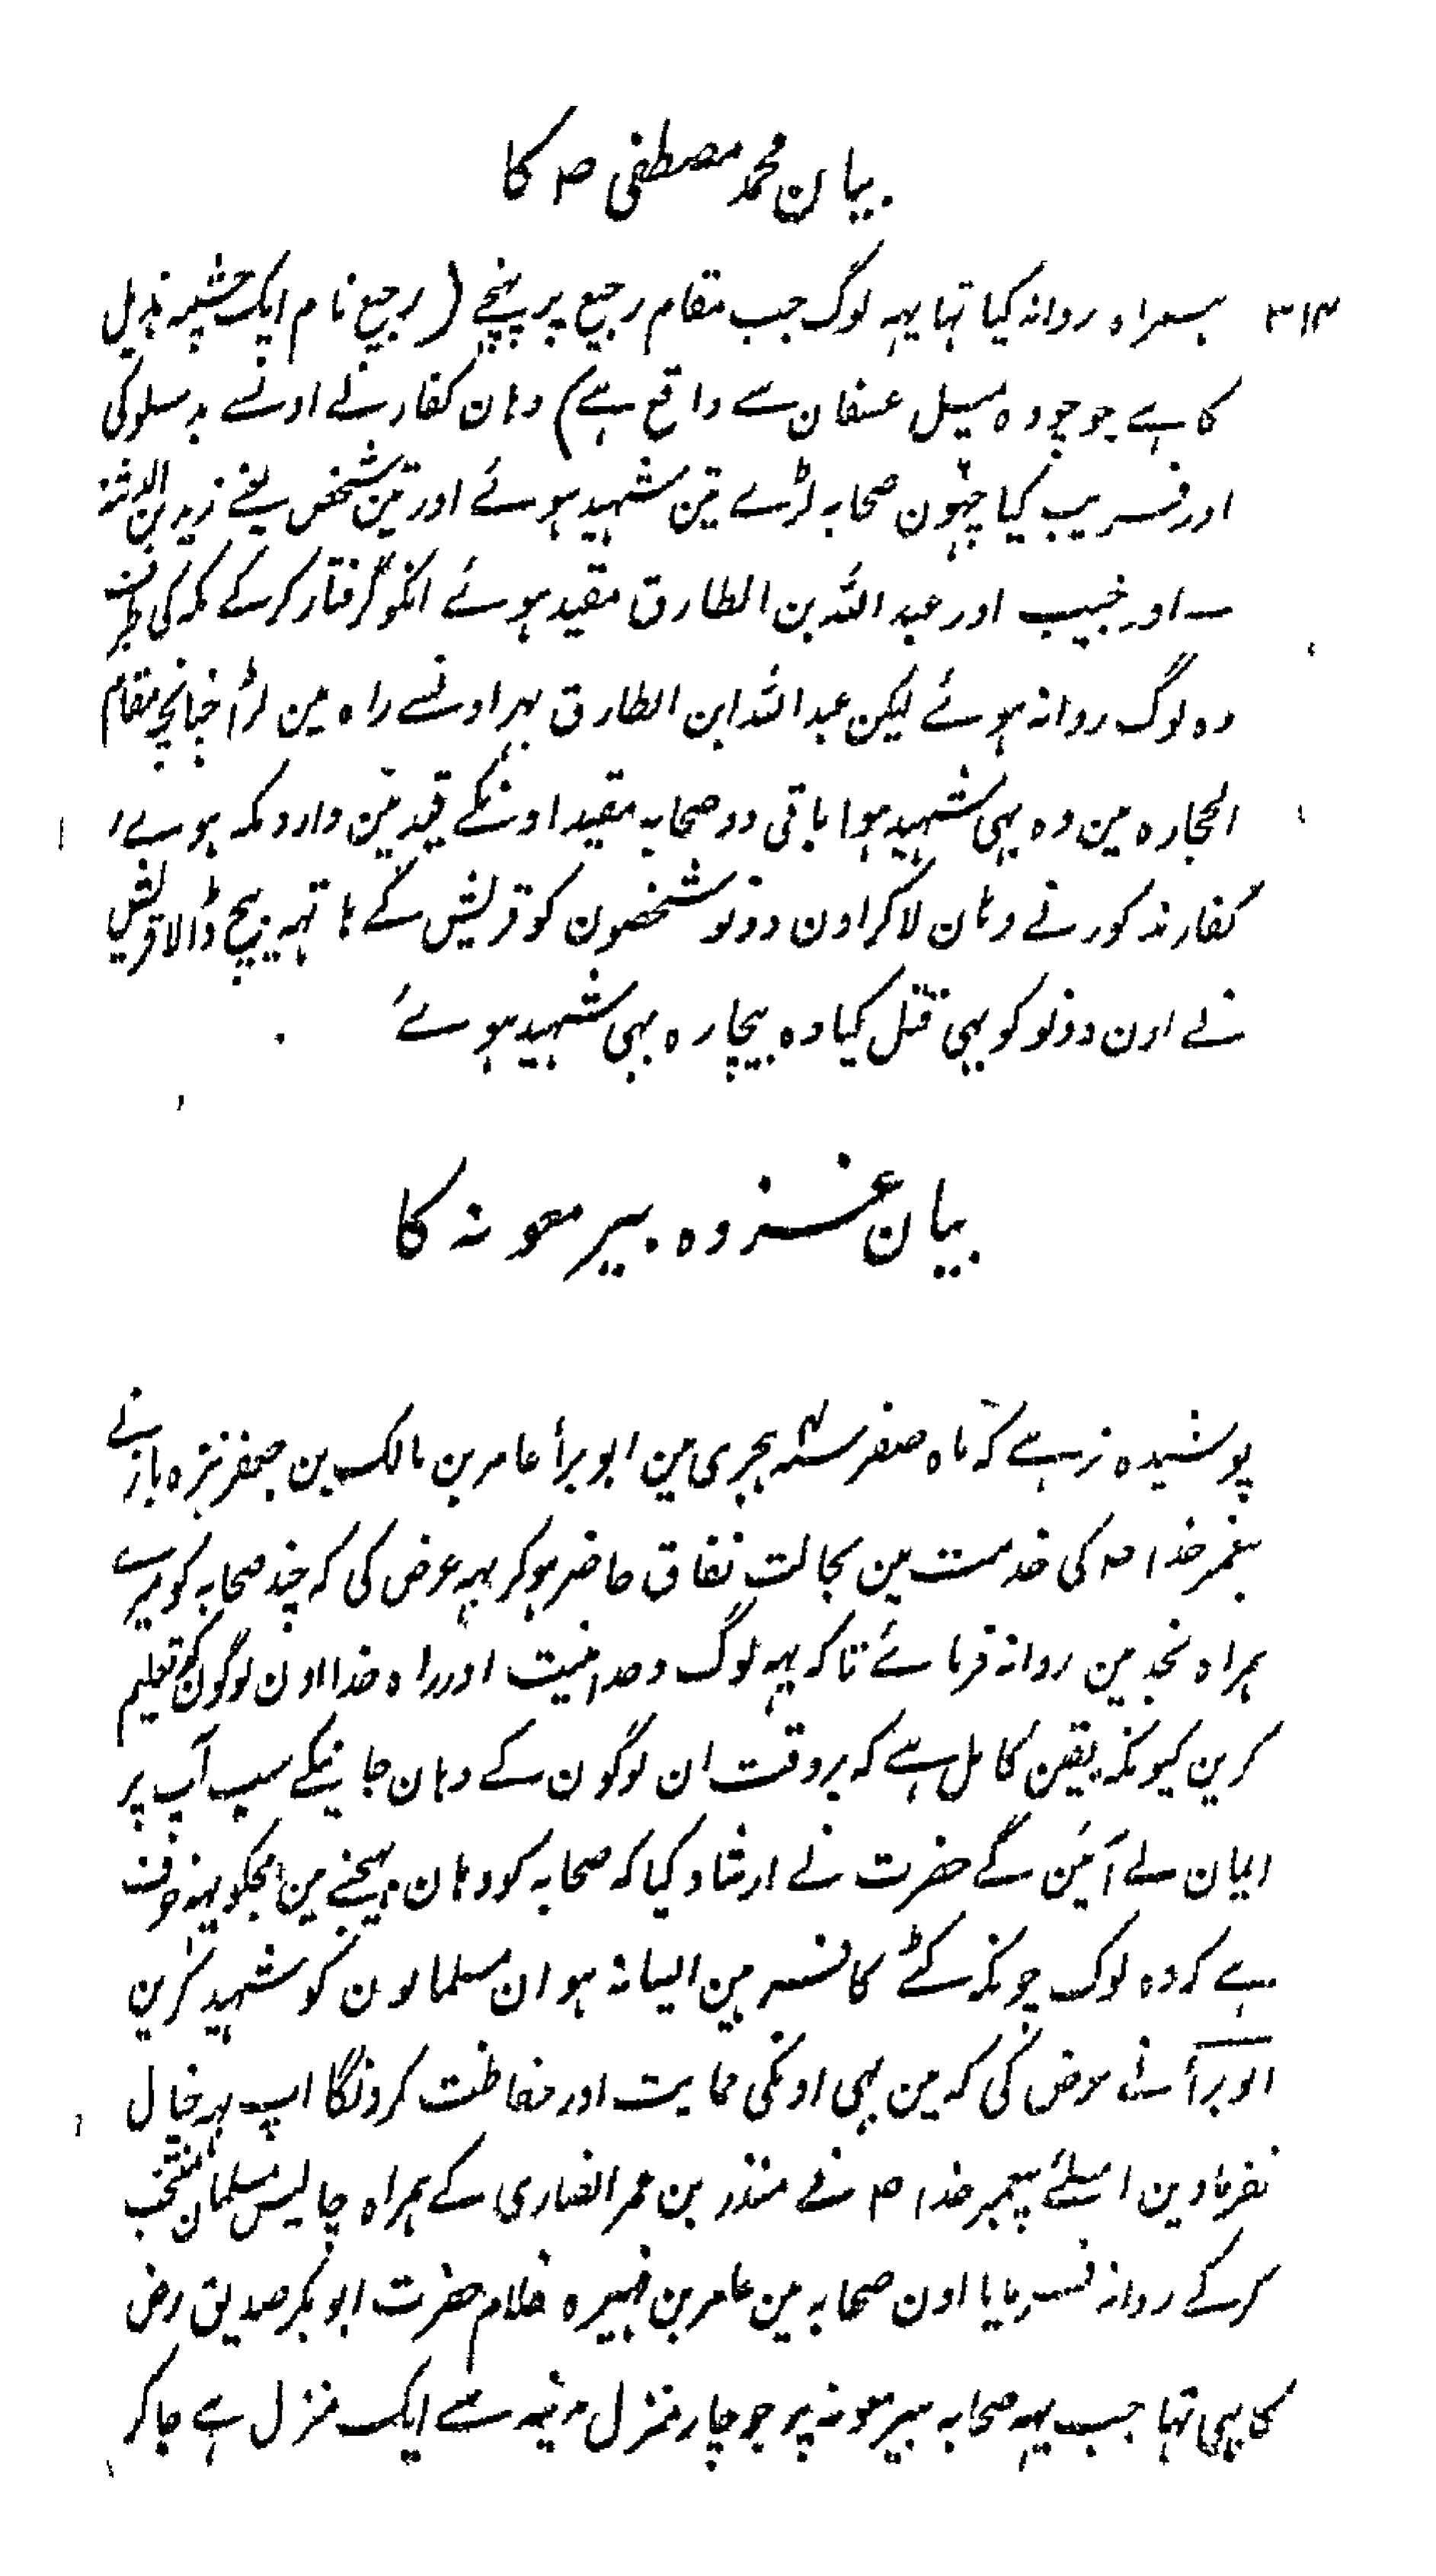 بیان محمد مصطفی ص کا
۳۱۴
ہمراہ روانہ کیا تہا یہہ لوگ جب مقام رجیع پر پہنچے (رجیع نام ایک چشمہ ہذیل
کا ہے جو چودہ میل عسفان سے واقع ہے) وہان کفار نے اونسے بدسلوکی
اور فریب کیا چہئون صحابہ لڑے تین شہید ہوئے اور تین شخص یعنے زید بن الدثنہ
اور خبیب اور عبد اللہ بن الطارق مقید ہوئے انکو گرفتار کرکے مکہ کی طرف
وہ لوگ روانہ ہوئے لیکن عبد اللہ ابن الطارق پہر اونسے راہ مین لڑا خپانچہ مقام
الحجارہ مین وہ بہی شہید ہوا باقی دو صحابہ مقید اونکے قید مین وارد مکہ ہوے
کفار مذکور نے وہان لاکر اون دونو شخصون کو قریش کے ہاتہہ بیچ ڈالا قریش
نے اون دونو کو بہی قتل کیا وہ بیچارہ بہی شہید ہوئے
بیان غزوہ بیر معونہ کا
پوشیدہ نرہے کہ ماہ صفر سنہ ۴ ہجری مین ابو برأ عامر بن مالک بن جعفر نیزہ باز نے
پیغمبر خدا ص کی خدمت مین بحالت نفاق حاضر ہوکر یہہ عرض کی کہ چند صحابہ کو میرے
ہمراہ نجد مین روانہ فرمائے تاکہ یہہ لوگ وحدانیت اور راہ خدا اون لوگون کو تعلیم
کرین کیونکہ یقین کامل ہے کہ بروقت ان لوگون کے وہان جانیکے سب آپ پر
ایمان لے آئین گے حضرت نے ارشاد کیا کہ صحابہ کو وہان بہیجنے مین مجکو یہہ خوف
ہے کہ وہ لوگ چونکہ کٹے کافر ہین ایسا نہ ہو ان مسلمانون کو شہید کرین
ابو برأ نے عرض کی کہ مین بہی اونکی حمایت اور حفاظت کرونگا آپ یہہ خیال
نفرماوین اسلئے پیغمبر خدا ص نے منذر بن عمر انصاری کے ہمراہ چالیس مسلمان منتخب
کرکے روانہ فرمایا اون صحابہ مین عامر بن فہیرہ غلام حضرت ابوبکر صدیق رض
کا بہی تہا جب یہہ صحابہ بیر معونہ پر جو چار منزل مدینہ سے ایک منزل ہے جاکر